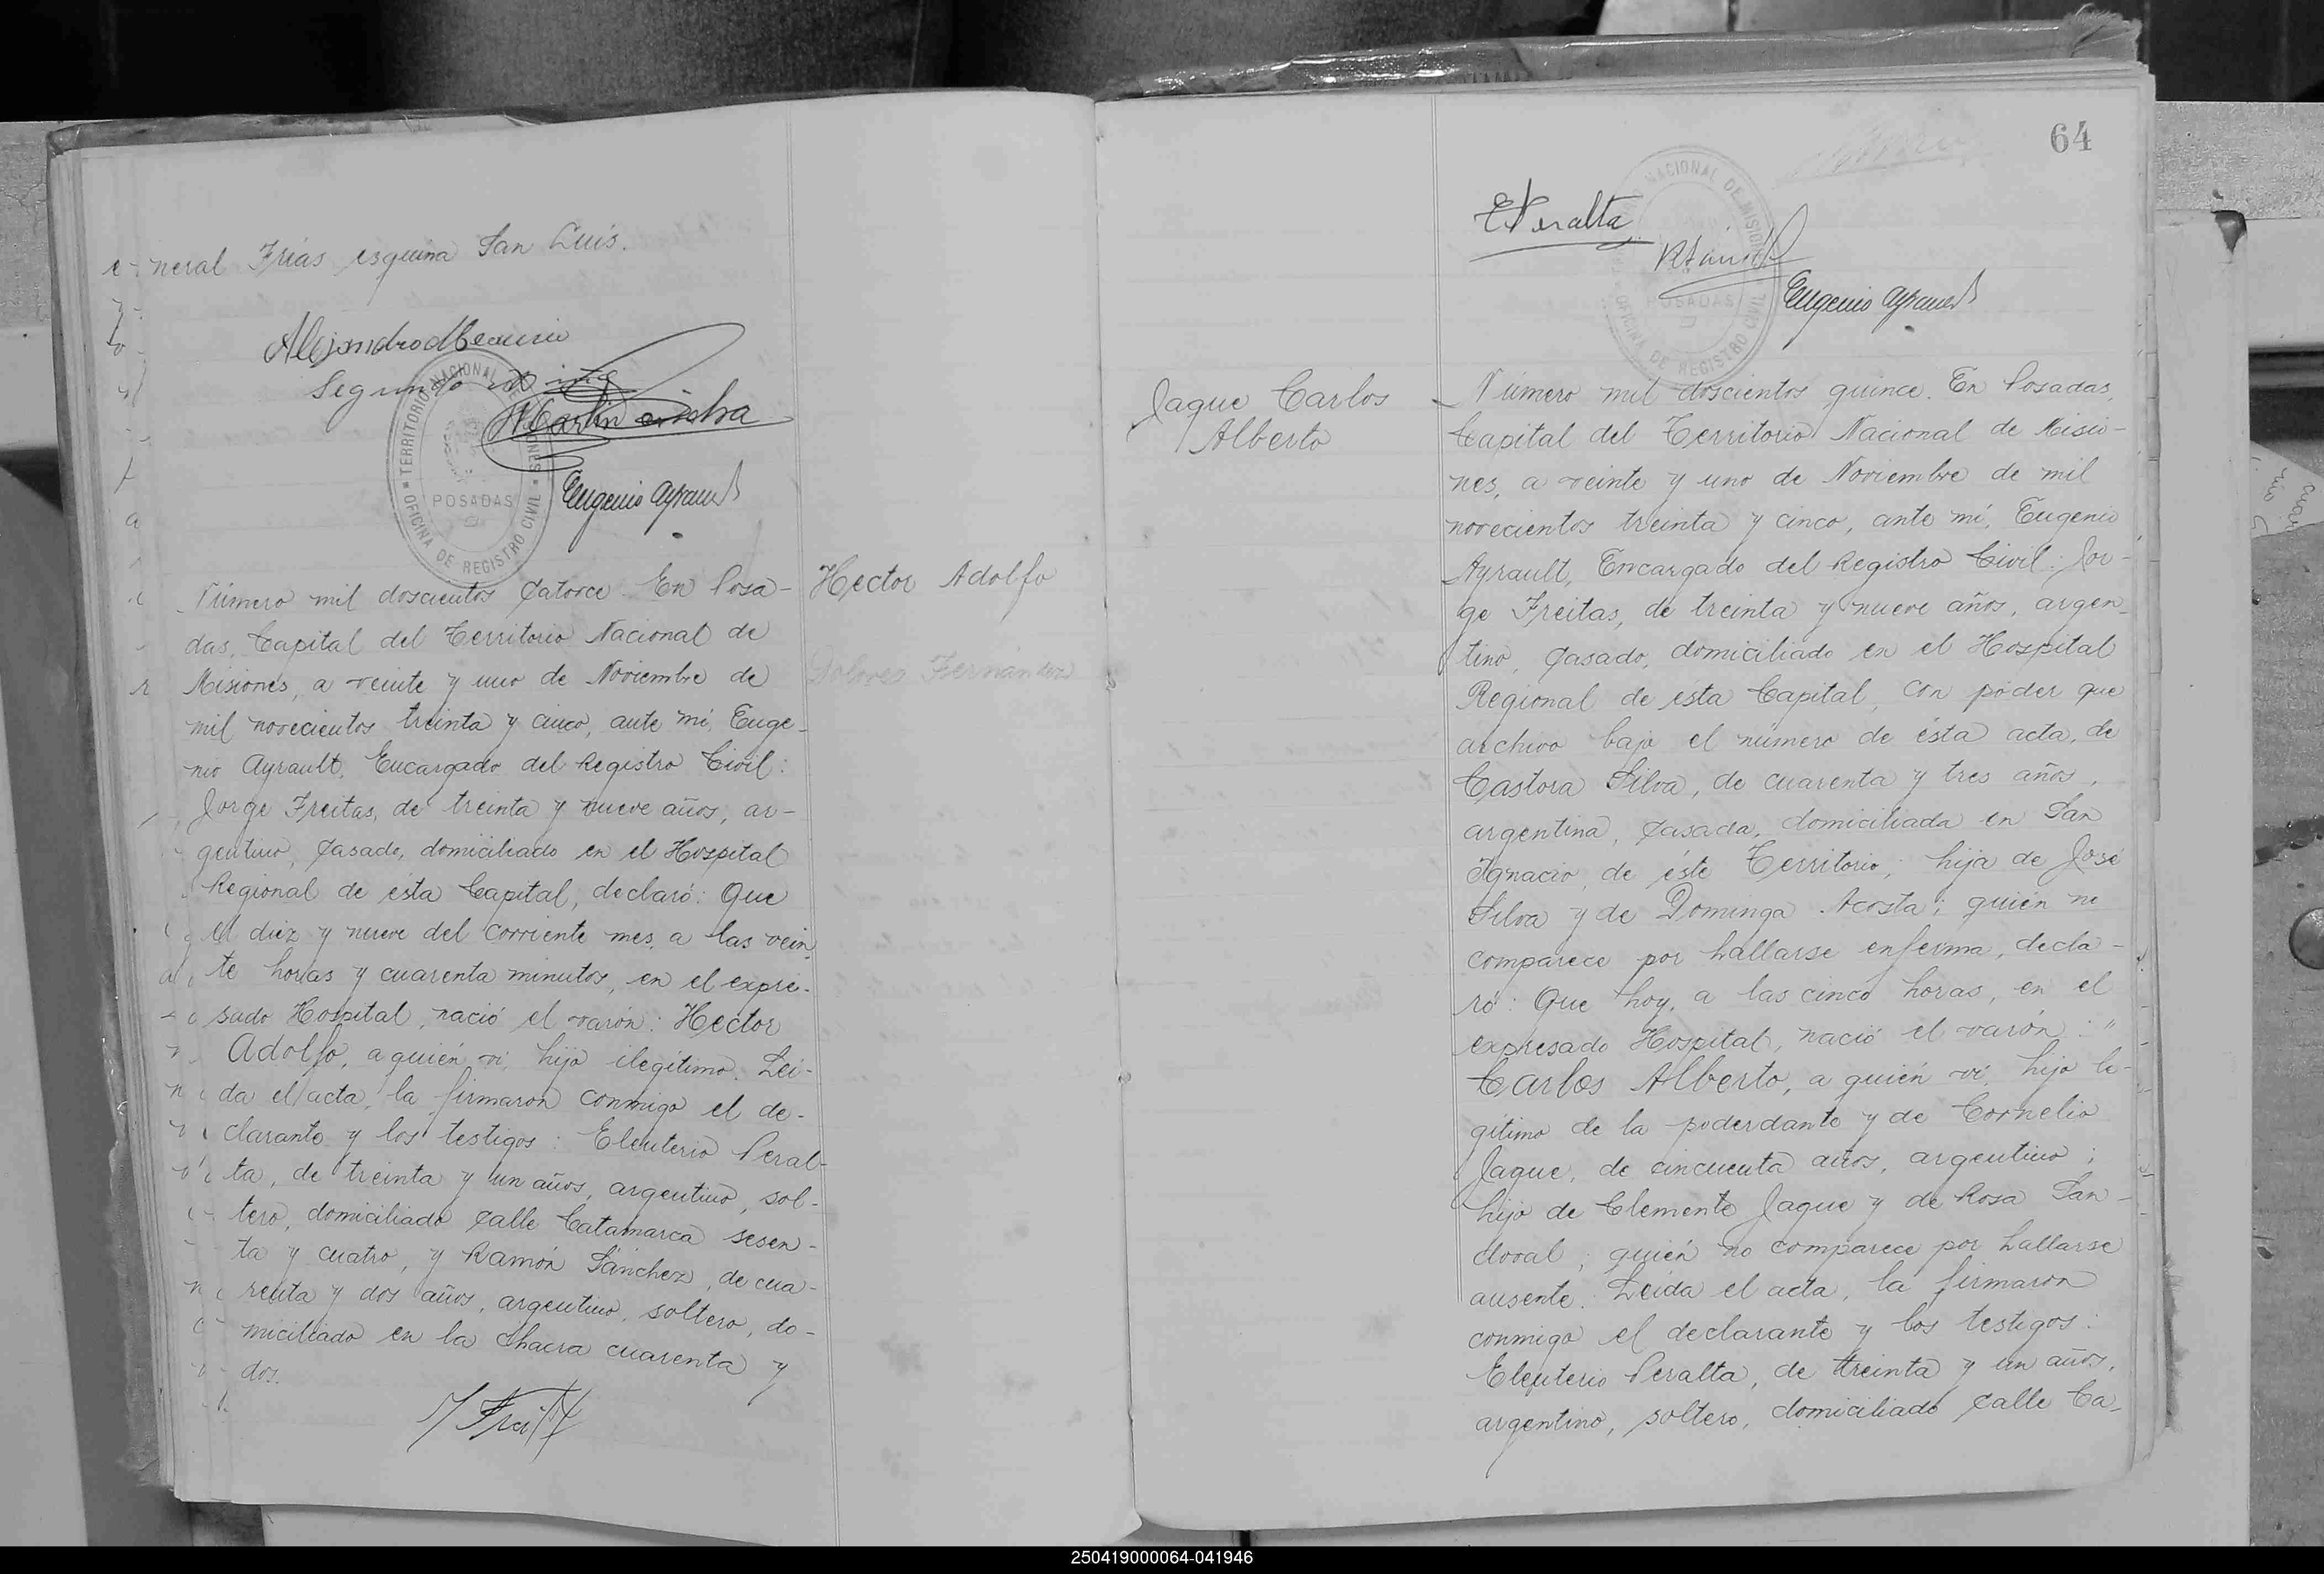 neral Frías esquina San Luis.
Alejandro
Segundo
Martin
TERRITORIO NACIONAL DE MISIONES
POSADAS
OFICINA DE REGISTRO CIVIL
Eugenio Ayrault
Número mil doscientos catorce. En Posa-
das, Capital del Territorio Nacional de
Misiones, a veinte y uno de Noviembre de
mil novecientos treinta y cinco, ante mí, Euge-
nio Ayrault, Encargado del Registro Civil:
Jorge Freitas, de treinta y nueve años, ar-
gentino, casado, domiciliado en el Hospital
Regional de ésta Capital, declaró: Que
el diez y nueve del corriente mes, a las vein-
te horas y cuarenta minutos, en el expre-
sado Hospital, nació el varón: Hector
Adolfo, a quién ví, hijo ilegítimo. Leí-
da el acta, la firmaron conmigo el de-
clarante y los testigos: Eleuterio Peral-
ta, de treinta y un años, argentino, sol-
tero, domiciliado calle Catamarca sesen-
ta y cuatro, y Ramón Sánchez, de cua-
renta y dos años, argentino, soltero, do-
miciliado en la chacra cuarenta y
dos.
J Freitas
Hector Adolfo
Dolores Fernandez
64
E Peralta
NACIONAL DE MISIONES
POSADAS
OFICINA DE REGISTRO CIVIL
Eugenio Ayrault
Jaque Carlos
Alberto
Número mil doscientos quince. En Posadas,
Capital del Territorio Nacional de Misio-
nes, a veinte y uno de Noviembre de mil
novecientos treinta y cinco, ante mí, Eugenio
Ayrault, Encargado del Registro Civil: Jor-
ge Freitas, de treinta y nueve años, argen-
tino, casado, domiciliado en el Hospital
Regional de ésta Capital, con poder que
archivo bajo el número de ésta acta, de
Castora Silva, de cuarenta y tres años,
argentina, casada, domiciliada en San
Ignacio, de éste Territorio; hija de José
Silva y de Dominga Acosta; quién no
comparece por hallarse enferma, decla-
ró: Que hoy, a las cinco horas, en el
expresado Hospital, nació el varón: "
Carlos Alberto, a quién ví, hijo le-
gítimo de la poderdante y de Cornelio
Jaque, de cincuenta años, argentino;
hijo de Clemente Jaque y de Rosa San-
doval; quién no comparece por hallarse
ausente. Leída el acta, la firmaron
conmigo el declarante y los testigos:
Eleuterio Peralta, de treinta y un años,
argentino, soltero, domiciliado calle Ca-
250419000064-041946